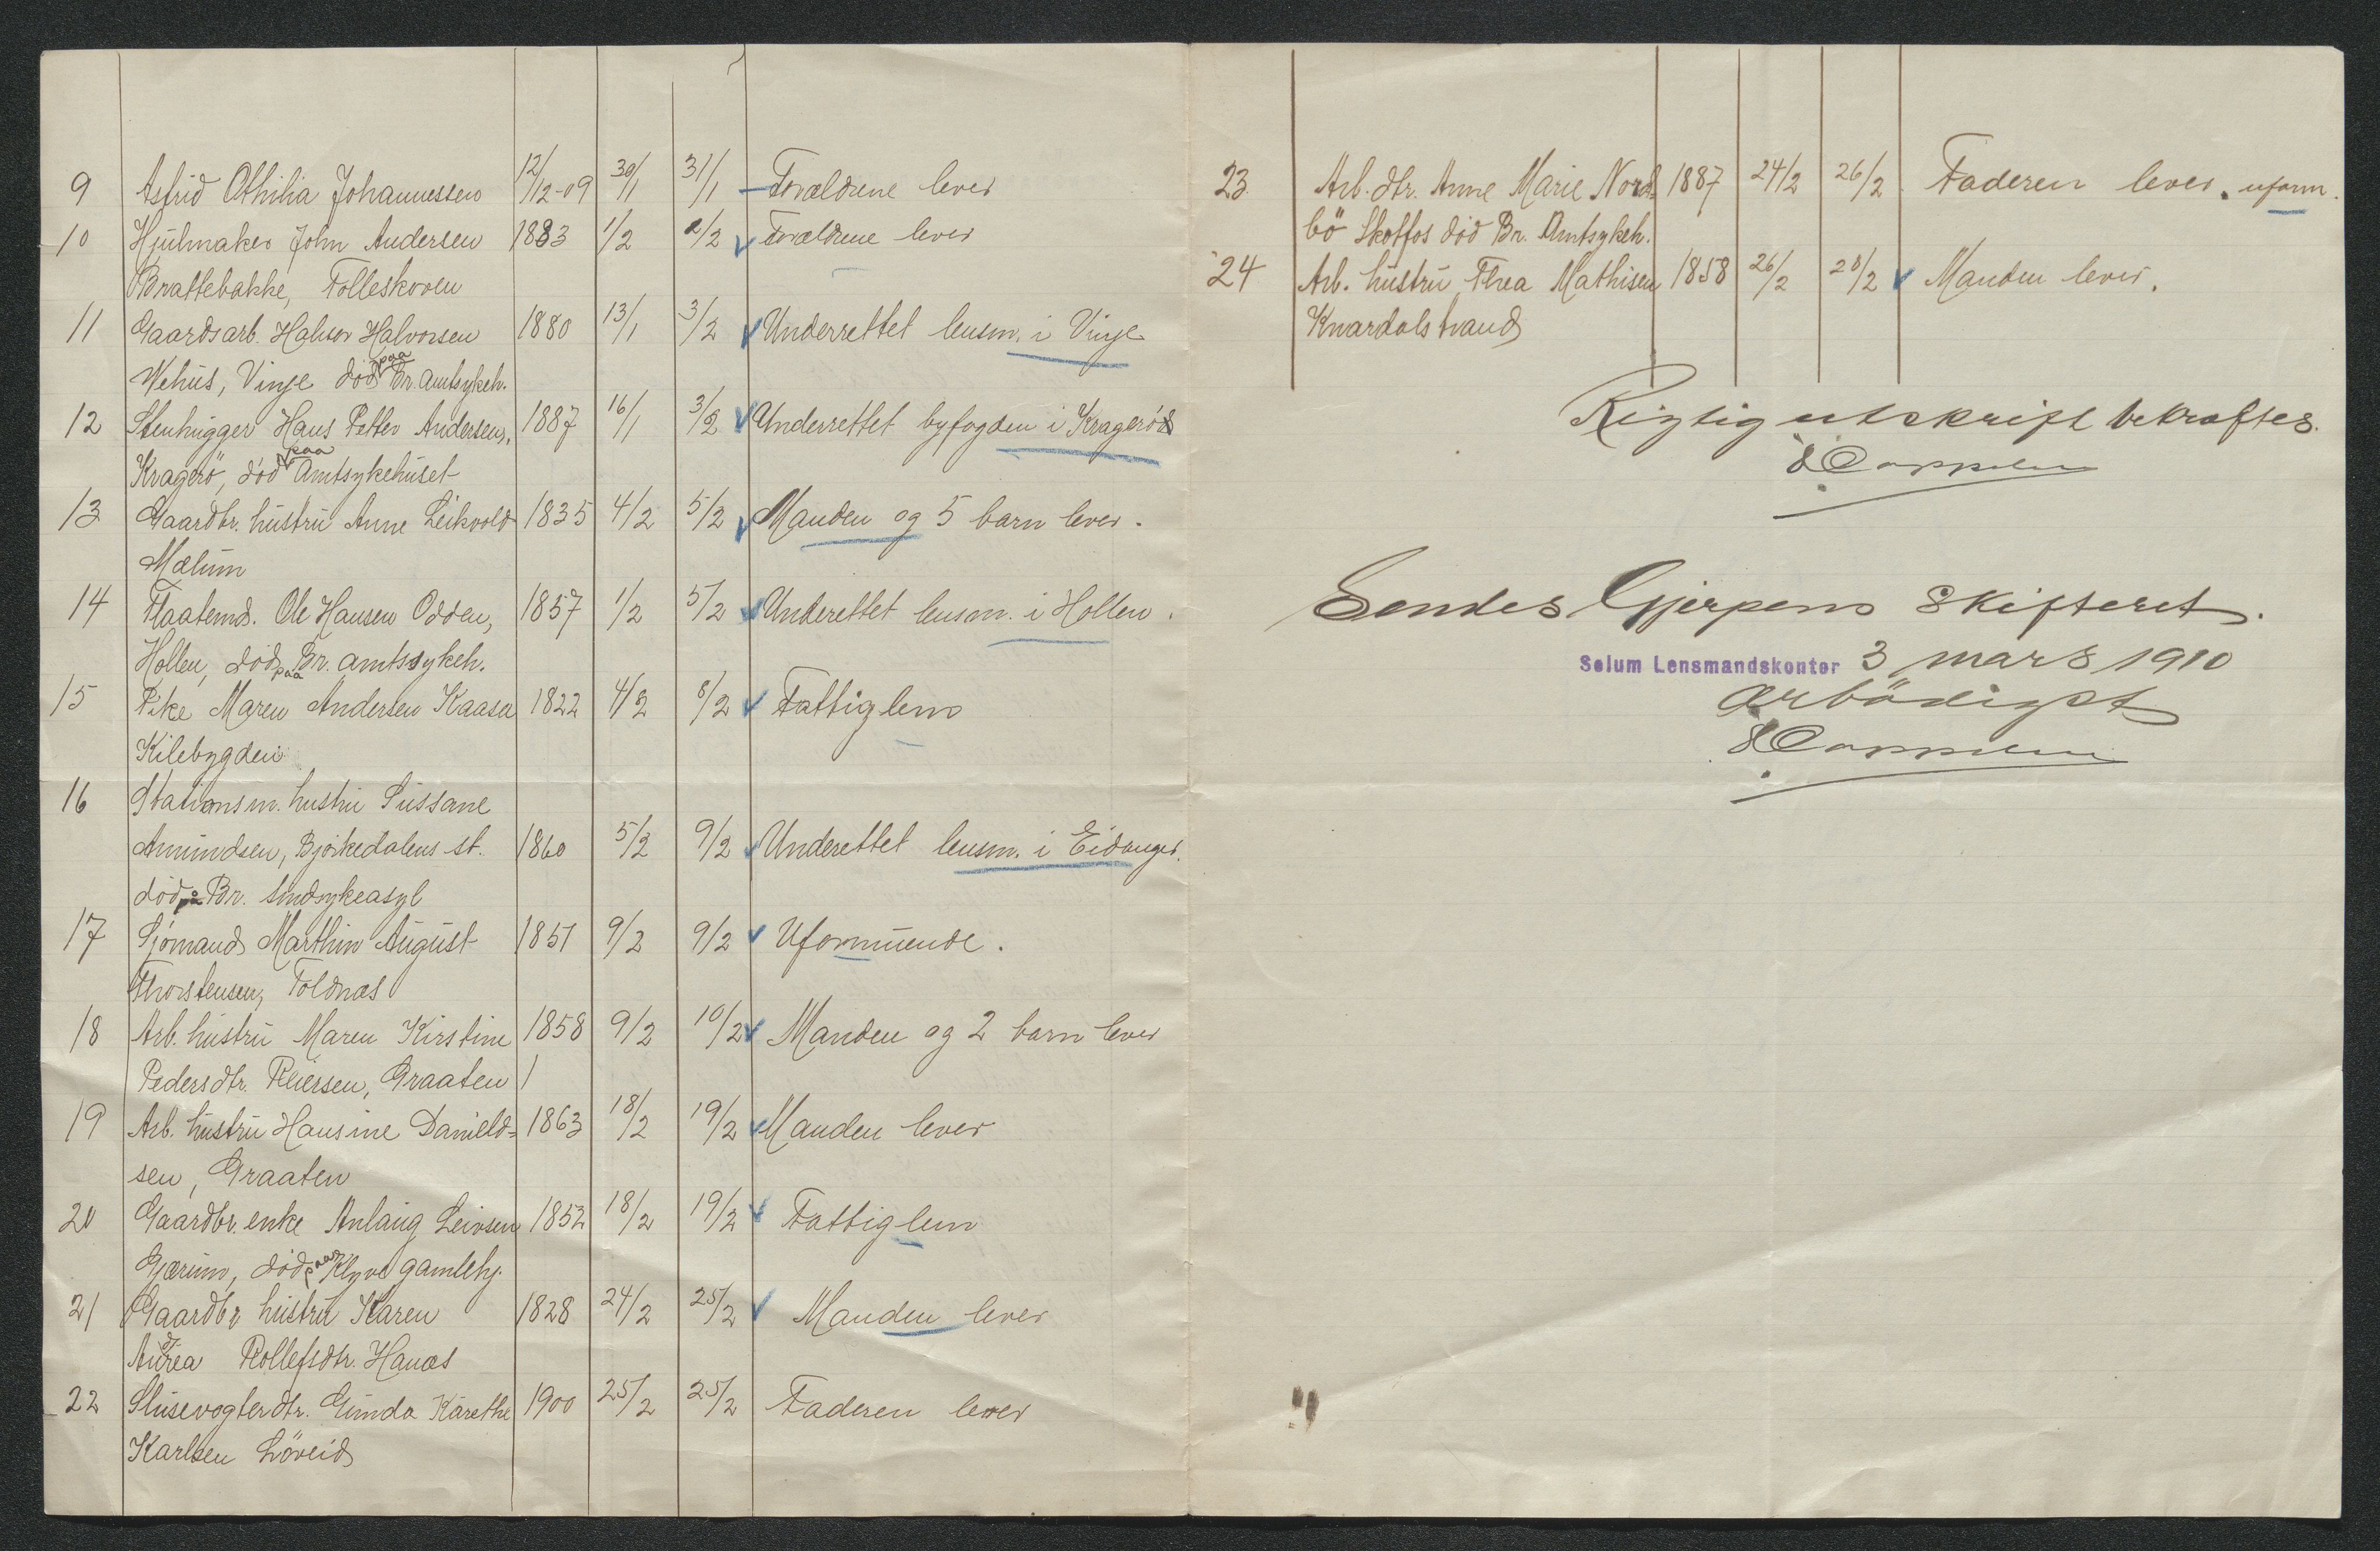 9 Astrid Othilia Johannessen 12/12-09 30/1 31/1 Forældrene lever
10 Hjulmaker John Andersen 1883 1/2 2/2 Forældrene lever
Brattebakke, Folleskoven
11 Gaardsarb. Halvor Halvorsen 1880 13/1 3/2 Underrettet lensm. i Vinje
Wehus, Vinje död paa Br. Amtsykeh.
12 Stenhugger Hans Petter Andersen, 1887 16/1 3/2 Underrettet byfogden i Kragerö
Kragerö, död paa Amtsykehuset
13 Gaardbr. hustru Anne Leikvold 1835 4/2 5/2 Manden og 5 barn lever.
Mælum
14 Flaatemd. Ole Hansen Odden, 1857 1/2 5/2 Underettet lensm. i Hollen.
Hollen, död paa Br. amtssykeh.
15 Pike Maren Andersen Kaasa 1822 4/2 8/2 Fattiglem
Kilebygden
16 Stationsm. hustru Sussane
Amundsen, Bjørkedalens st. 1860 5/2 9/2 Underettet lensm. i Eidanger.
död på Br. sindsykeasyl
17 Sjömand Marthin August 1851 9/2 9/2 Uformuende.
Thorstensen, Foldnæs
18 Arb. hustru Maren Kirstine 1858 9/2 10/2 Manden og 2 barn lever
Pedersdtr. Graaten
19 Arb. hustru Hansine Danield- 1863 18/2 19/2 Manden lever
sen, Graaten
20 Gaardbr. enke Anlaug Leivsen 1852 18/2 19/2 Fattiglem
Gærum, död paa Klyve gamlehj.
21 Gaardbr hustru Karen 1828 24/2 25/2 Manden lever
Rollefsdtr. Hanæs
22 Slusevogterdtr. Gunda Karethe 1900 25/2 25/2 Faderen lever
Karlsen Löveid
23. Arb. dtr. Anne Marie Nord- 1887 24/2 26/2 Faderen lever. uform.
bö Skotfos död Br. Amtsykeh.
24 Arb. hustru Thea Mathisen 1858 26/2 28/2 Manden lever.
Knardalstrand
Rigtig utskrift bekræftes.
Cappelen
Sendes Gjerpens Skifteret.
Solum Lensmandskontor 3 mars 1910
ærbödigst
Cappelen